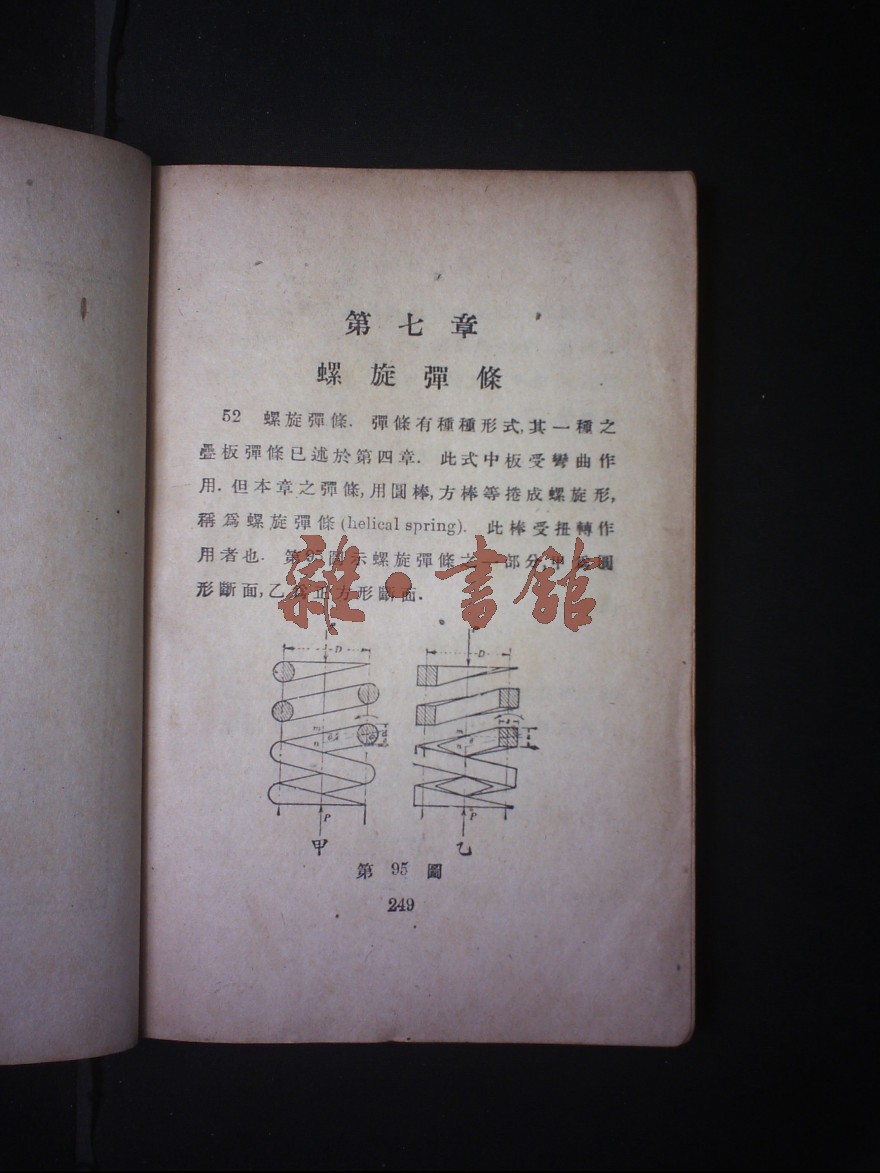 第七章
螺旋彈條
52 螺旋彈條. 彈條有種種形式,其一種之
疊板彈條已述於第四章. 此式中板受彎曲作
用. 但本章之彈條,用圓棒,方棒等捲成螺旋形,
稱爲螺旋彈條(helical spring). 此棒受扭轉作
用者也. 第95圖示螺旋彈條之一部分,甲爲圓
形斷面,乙爲正方形斷面.
雜·書館
D D
m m
n n
P P
甲 乙
第 95 圖
249